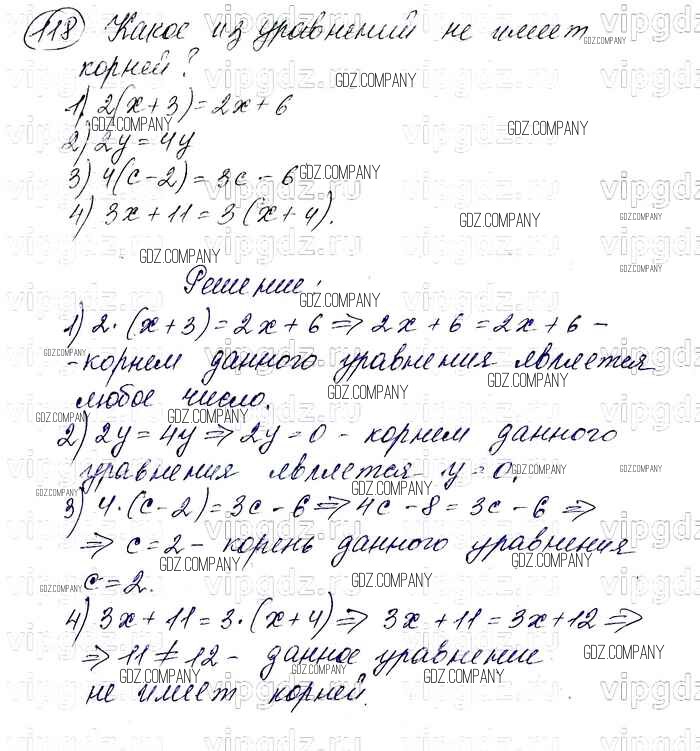 118 Какое из уравнений не имеет
корней?
1) 2(x+3)=2x+6
2) 2y=4y
3) 4(c-2)=3c-6
4) 3x+11=3(x+4).
Решение:
1) 2·(x+3)=2x+6 ⇒ 2x+6=2x+6 -
- корнем данного уравнения является
любое число.
2) 2y=4y ⇒ 2y=0 - корнем данного
уравнения является y=0.
3) 4·(c-2)=3c-6 ⇒ 4c-8=3c-6 ⇒
⇒ c=2 - корень данного уравнения
c=2.
4) 3x+11=3·(x+4) ⇒ 3x+11=3x+12 ⇒
⇒ 11≠12 - данное уравнение
не имеет корней.
GDZ.COMPANY
vipgdz.ru